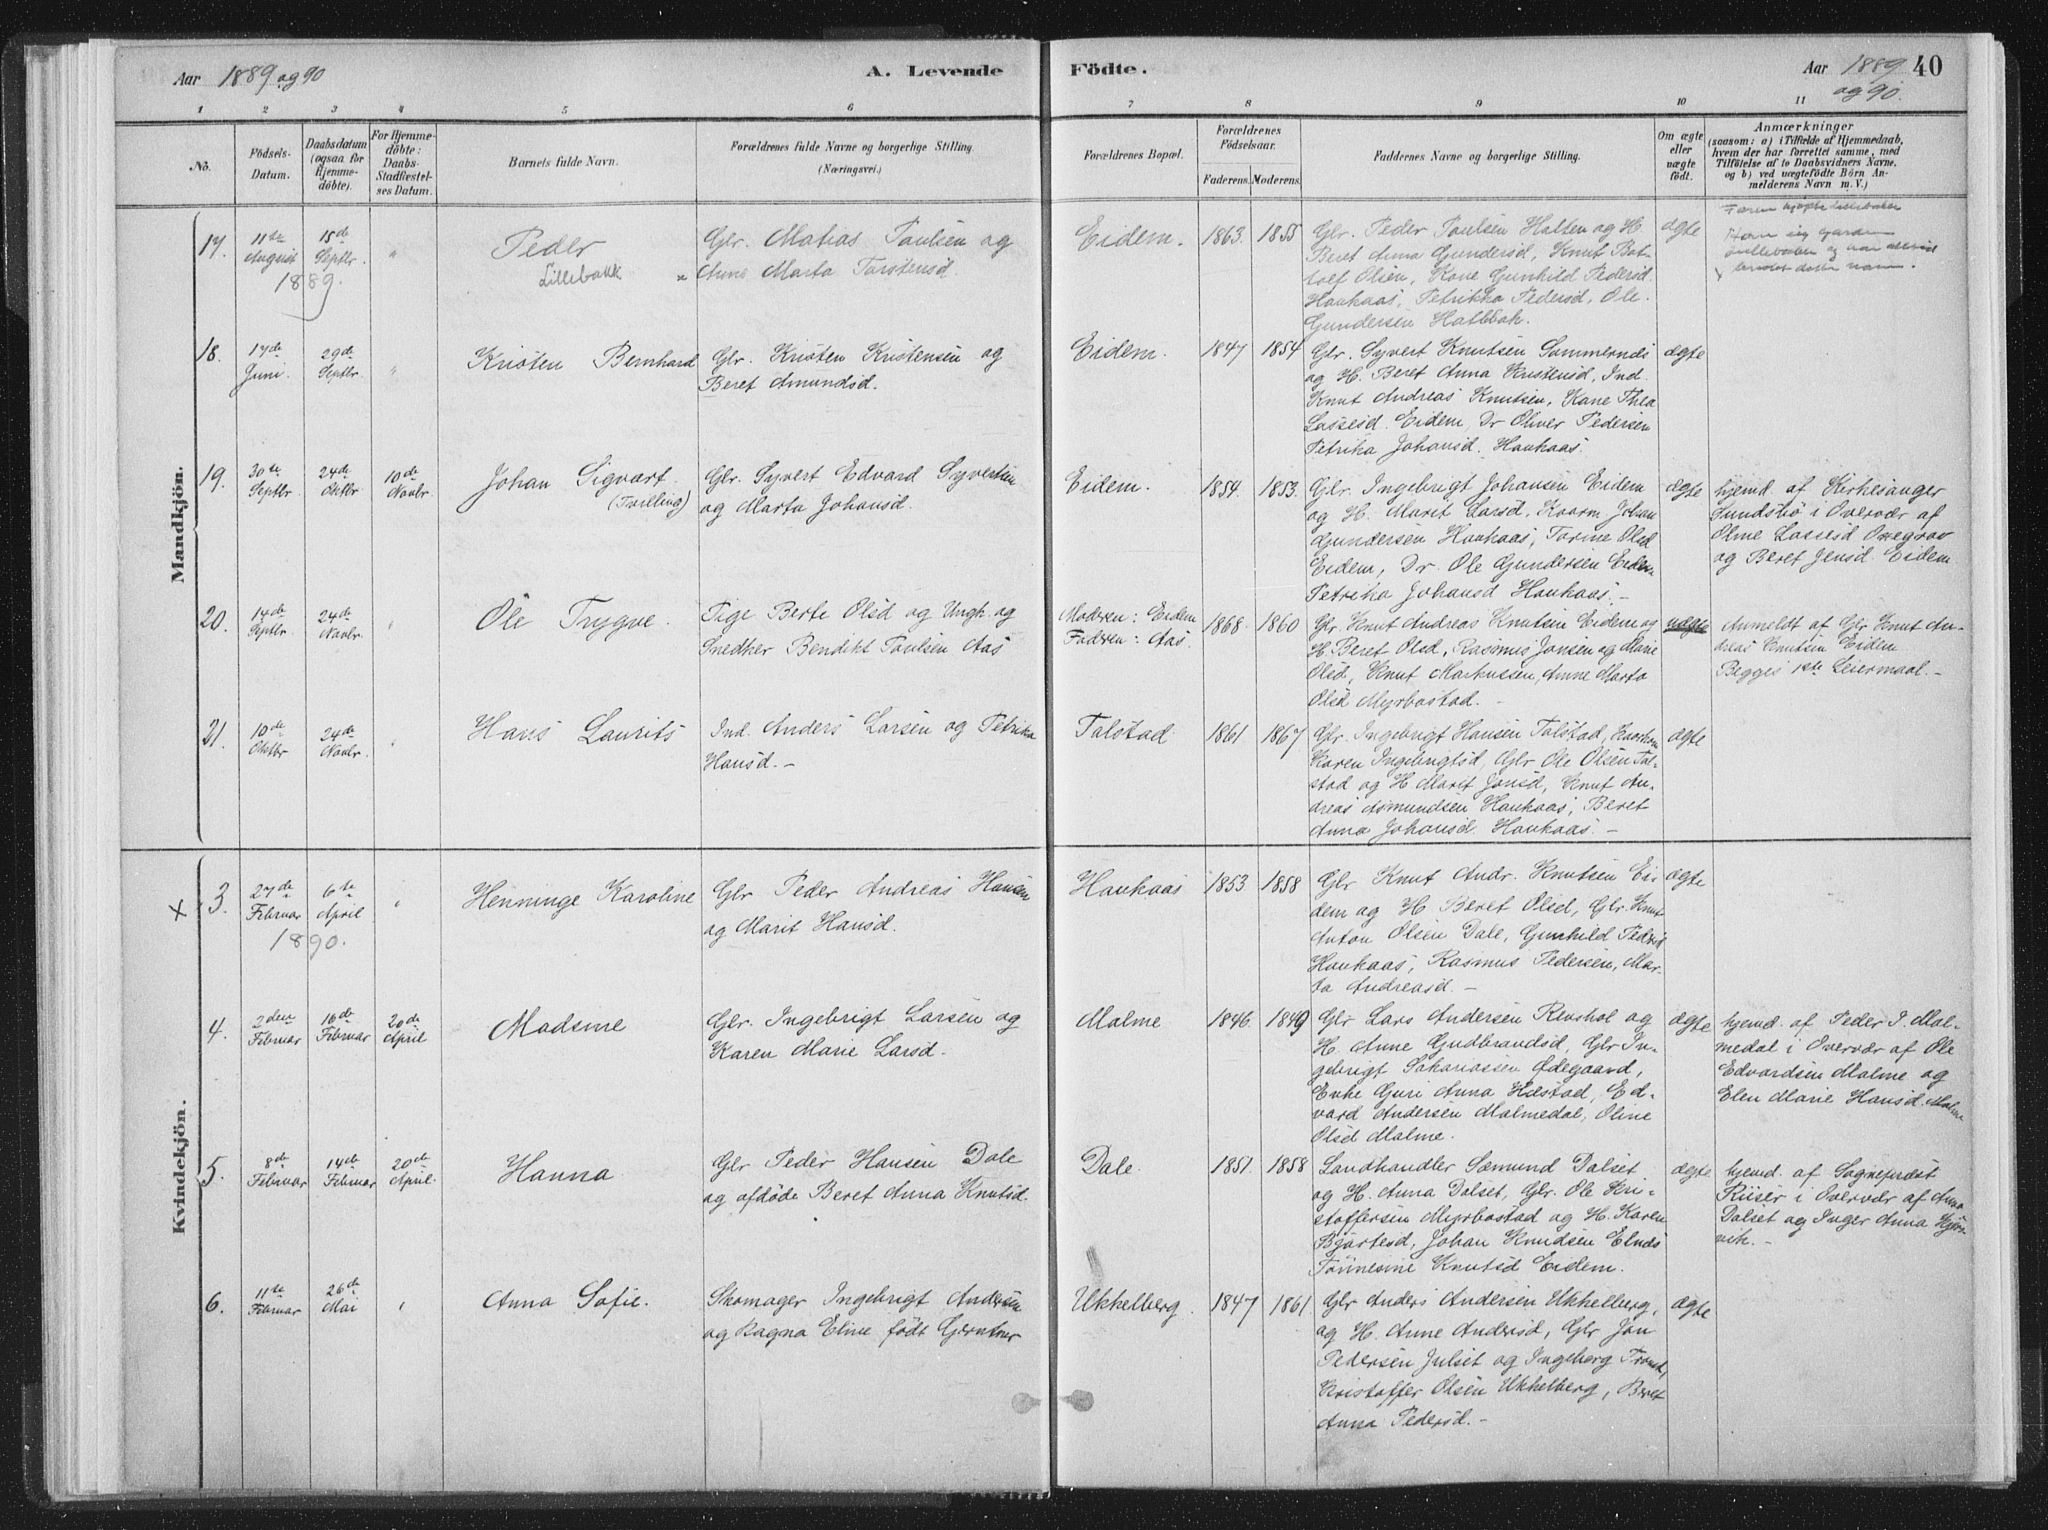 Aar 1889 og 90
A. Levende
Födte.
Aar 1889 og 90.
40
1 2 3 4 5 6 7 8 9 10 11
No.
Födsels-
Datum.
Daabsdatum
(ogsaa for
Hjemme-
döbte).
For Hjemme-
döbte:
Daabs-
Stadfæstel-
ses Datum.
Barnets fulde Navn.
Forældrenes fulde Navne og borgerlige Stilling.
(Næringsvei.)
Forældrenes Bopæl.
Forældrenes
Födselsaar.
Faderens.
Moderens.
Faddernes Navne og borgerlige Stilling.
Om ægte
eller
uægte
födt.
Anmærkninger
(saasom: a) i Tilfælde af Hjemmedaab,
hvem der har forrettet samme, med
Tilföielse af to Daabsvidners Navne,
og b) ved uægtefödte Börn An-
melderens Navn m. V.)
Mandkjön.
17.
11te
August
1889.
15de
Septbr.
"
Peder
Lillebakk
Glr. Matias Paulsen og
Anne Marta Torstensd.
Eidem.
1863.
1855
Glr. Peder Paulsen Halten og H.
Beret Anna Gundersd, Knut Bot-
tolf Olsen, Kone Gunhild Pedersd.
Haukaas, Petrikka Pedersd, Ole
Gundersen Hatlebak.
ægte
18.
17de
Juni.
29de
Septbr.
"
Kristen Bernhard
Glr. Kristen Kristensen og
Beret Amundsd.
Eidem.
1847
1854
Glr. Syvert Knutsen Sommernes
og H. Beret Anna Kristensd, Ind.
Knut Andreas Knutsen, Kone Thea
Lassesd. Eidem, Dr Oliver Pedersen
Petrika Johansd. Haukaas.
ægte
19.
30te
Septbr
24de
Oktbr
10de
Novbr.
Johan Sigvart.
(Tvilling)
Glr. Syvert Edvard Syvertsen
og Marta Johansd.
Eidem.
1854.
1853.
Glr. Ingebrigt Johansen Eidem
og H. Marit Larsd, Kaarm. Johan
Gundersen Haukaas, Torine Olsd
Eidem, Dr. Ole Gundersen Eidem
Petrika Johansd Haukaas. -
ægte
hjemd af Kirkesanger
Sundsbö i Overvær af
Oline Lassesd
og Beret Jensd. Eidem
20.
14de
Septbr
24de
Novbr.
"
Ole Trygve.
Pige Berte Olsd og Ungk. og
Snedker Bendikt Paulsen Aas
Moderen: Eidem
Faderen: Aas.
1868.
1860
Glr. Knut Andreas Knutsen Eidem og
H. Beret Olsd, Rasmus Jansen og Marie
Olsd, Knut Markussen, Anne Marta
Olsd Myrbostad. -
uægte
Anmeldt af Glr Knut An-
dreas Knutsen Eidem
Begges 1ste Leiermaal. -
21.
10de
Oktbr
24de
Novbr.
"
Hans Laurits
Ind. Anders Larsen og Petrika
Hansd. -
Talstad
1861
1867
Glr. Ingebrigt Hansen Talstad,
Karen Ingebrigtsd, Glr Ole Olsen Tal-
stad og H Marit Jonsd, Knut An-
dreas Asmundsen Haukaas, Beret
Anna Johansd. Haukaas. -
ægte
Kvindekjön.
x 3.
27de
Februar
1890.
6te
April
"
Henninge Karoline
Glr Peder Andreas Hansen
og Marit Hansd.
Haukaas
1853
1858
Glr Knut Andr. Knutsen Ei-
dem og H Beret Olsd, Glr. Knut
Anton Olsen Dale, Gunhild Pedersd
Haukaas, Rasmus Pedersen, Mar-
ta Andreasd. -
ægte
4.
2den
Februar
16de
Februar
20de
April
Madsine
Glr. Ingebrigt Larsen og
Karen Marie Larsd.
Malme
1846.
1849
Glr Lars Andersen Revshol og
H. Anne Gudbrandsd, Glr In-
gebrigt Sakariassen Ødegaard,
Enke Guri Anna Hæstad, Ed-
vard Andersen Malmedal, Oline
Olsd Malme.
ægte
hjemd. af Peder I. Mal-
medal i Overvær af Ole
Edvardsen Malme og
Elen Marie Hansd. Malme
5.
8de
Februar
14de
Februar
20de
April.
Hanna
Glr Peder Hansen Dale
og afdöde Beret Anna Knutsd.
Dale.
1851.
1858
Landhandler Sæmund Dalset
og H. Anna Dalset, Glr. Ole Kri-
stoffersen Myrbostad og H. Karen
Bjartesd, Johan Knudsen Elnes
Tönnesine Knutsd Eidem.
ægte
hjemd. af Sogneprest
Riiser i Overvær af Anna
Dalset og Inger Anna Hjers-
vik. -
6.
11te
Februar
26de
Mai
"
Anna Sofie.
Skomager Ingebrigt Andersen
og Ragna Eline födt Gerntner
Ukkelberg.
1847
1861.
Glr Anders Andersen Ukkelberg,
og H. Anne Andersd, Glr Jon
Pedersen Julset og Ingeborg
Kristoffer Olsen Ukkelberg, Beret
Anna Pedersd. -
ægte